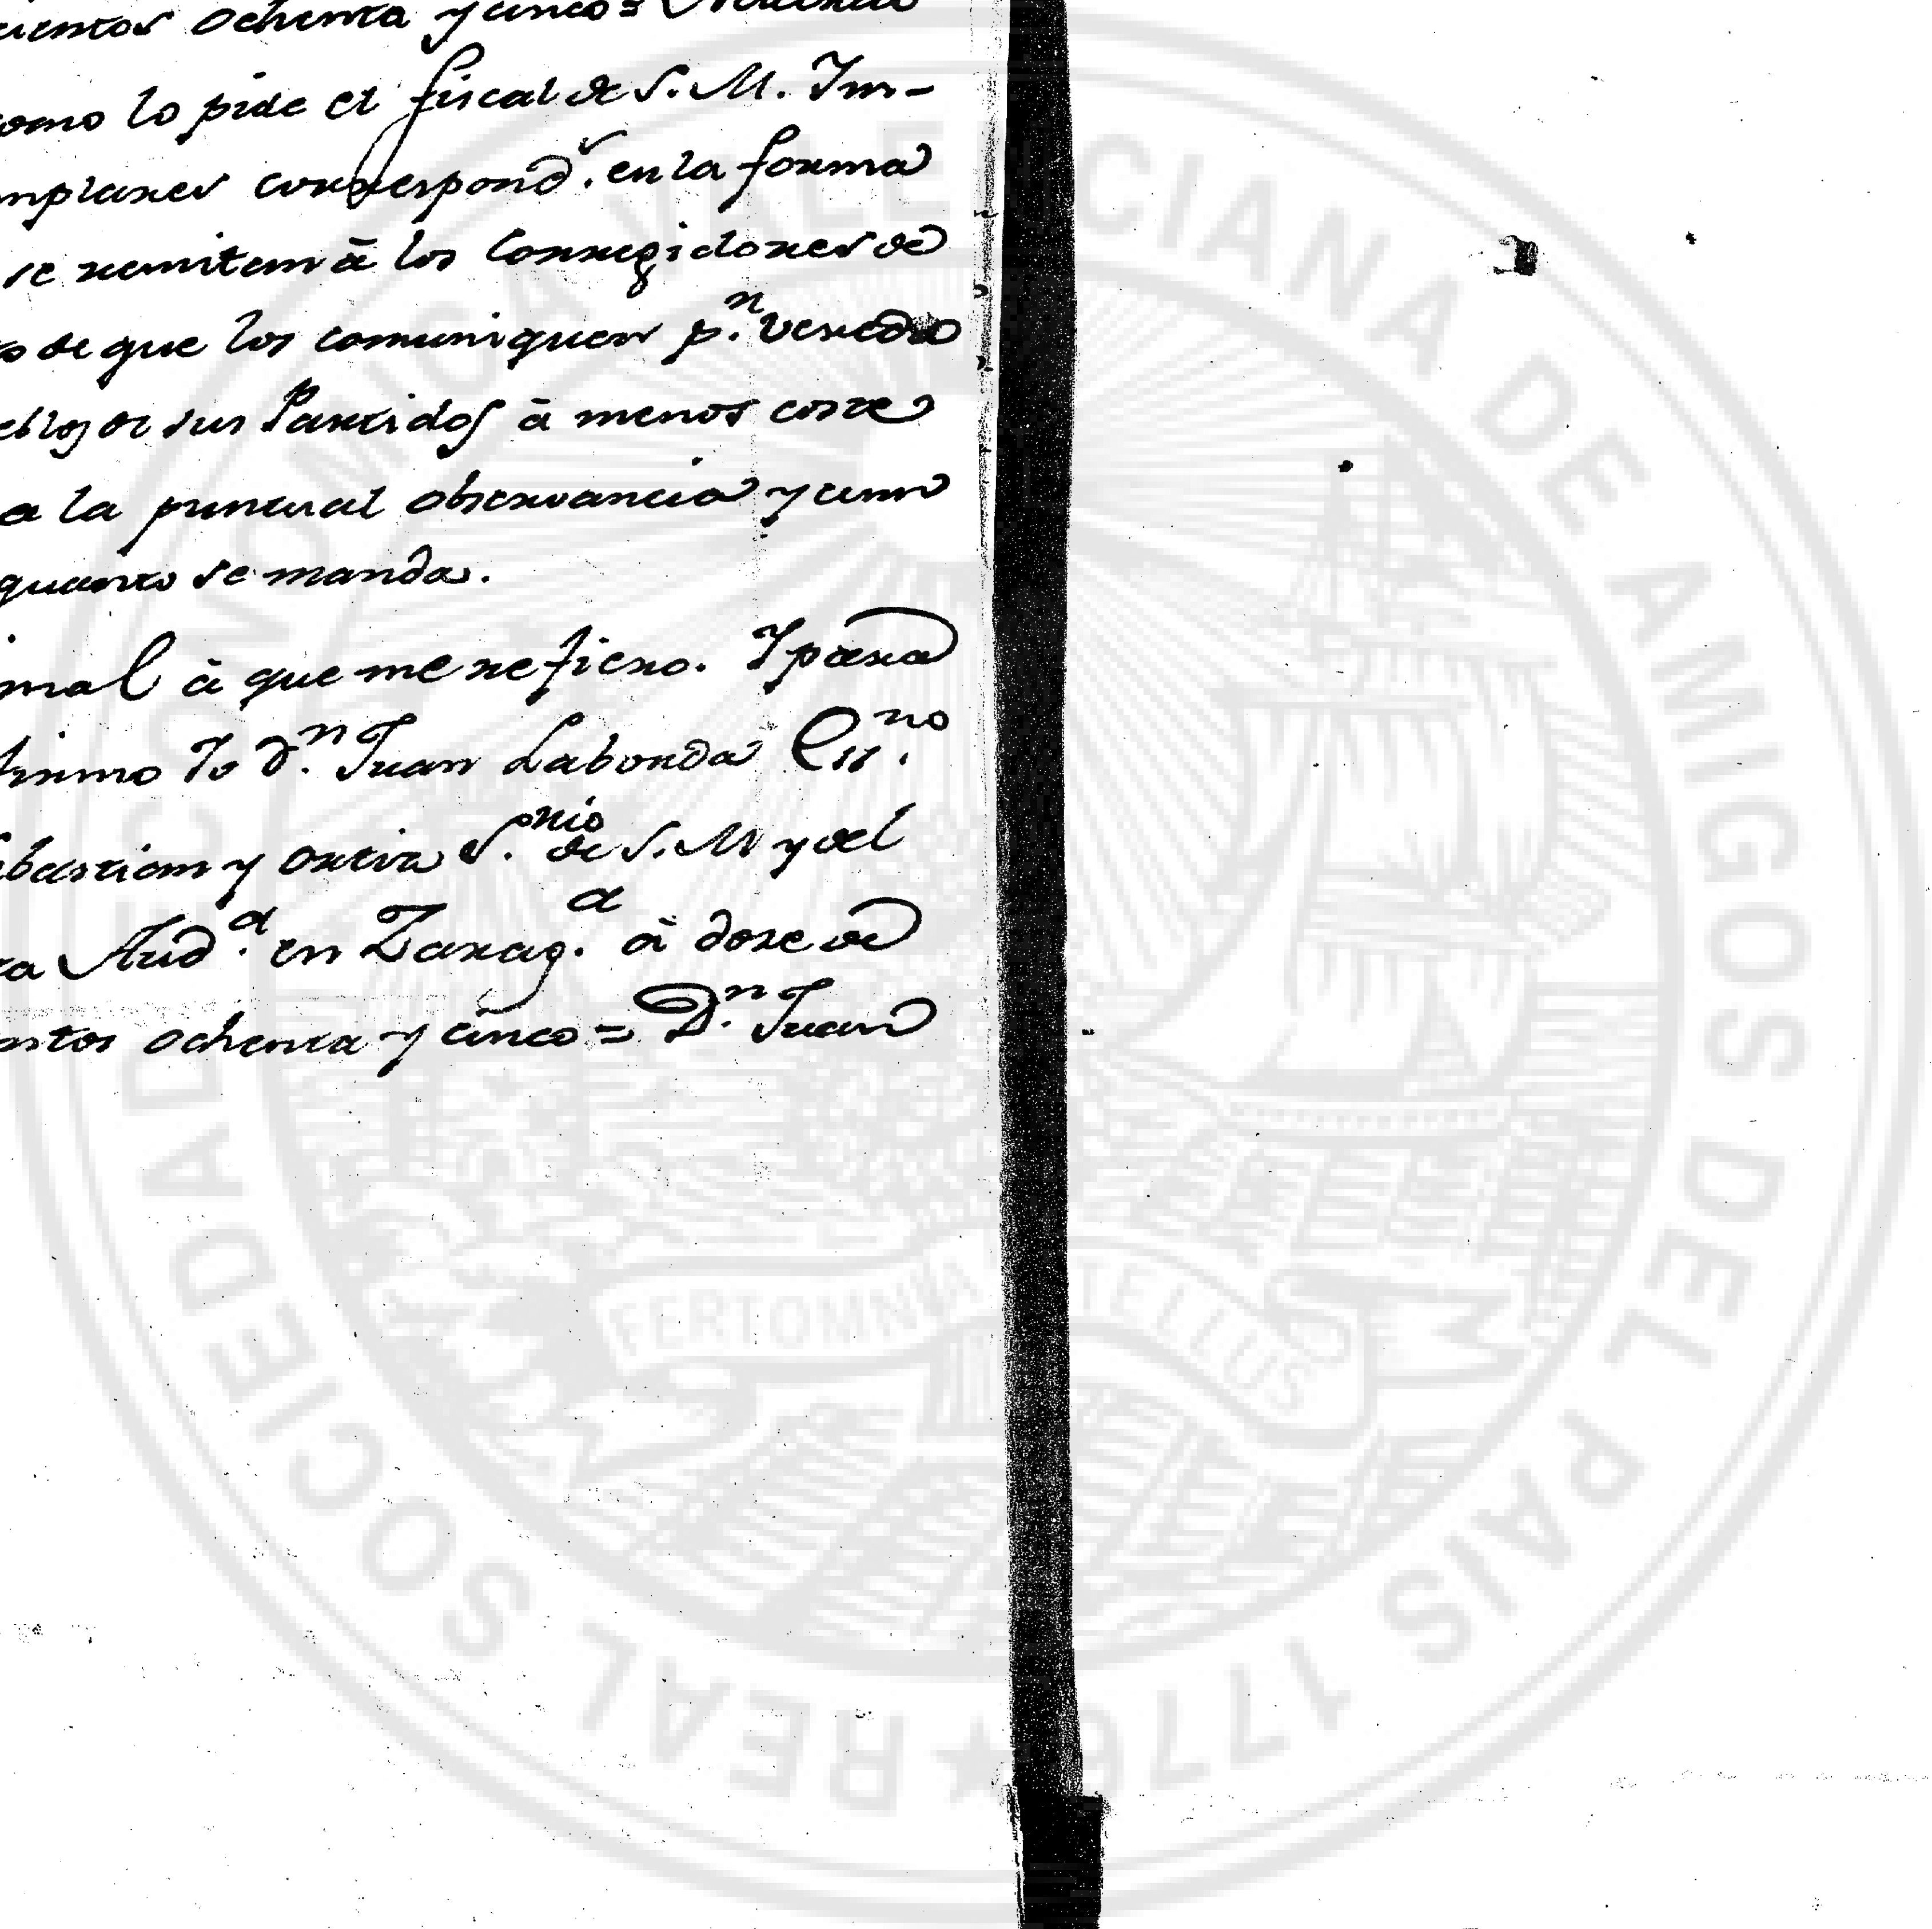 cientos ochenta y cinco =
como lo pide el fiscal de S. M. Im-
mplares correspond.s en la forma
se remiten à los Corregidores de
de que los comuniquen p.n Vereda
eblos de sus Partidos à menos coste
a la puntual observancia y cum
quanto se manda.
inal à que me refiero. Y para
firmo Yo D.n Juan Laborda Ess.no
ebastian y Ortiz S.rio de S. M. y del
ta Aud.a en Zarag.a à doze de
entos ochenta y cinco = D.n Juan
REAL SOCIEDAD ECONOMICA VALENCIANA DE AMIGOS DEL PAIS 1776
FERT OMNIA TELLUS